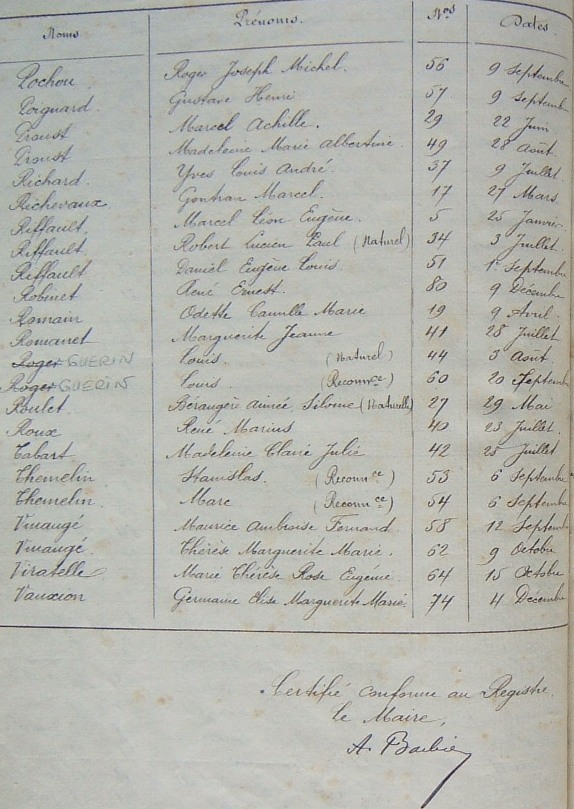 Noms Prénoms. Nos Dates.
Pochou Roger Joseph Michel. 56 9 Septembre
Poignard. Gustave Henri 57 9 Septembre
Proust Marcel Achille. 29 22 Juin
Proust Madeleine Marie Albertine 49 28 Août.
Richard. Yves Louis André. 37 9 Juillet.
Richevaux. Gontran Marcel. 17 27 Mars.
Riffault. Marcel Léon Eugène. 5 25 Janvier.
Riffault. Robert Lucien Paul (Naturel) 34 3 Juillet.
Riffault Daniel Eugène Louis. 51 1er Septembre
Robinet René Ernest. 80 9 Décembre
Romain Odette Camille Marie 19 9 Avril.
Romanet Marguerite Jeanne 41 28 Juillet
Roger GUERIN Louis. (Naturel) 44 3 Août.
Roger GUERIN Louis. (Reconnce) 60 20 Septembre
Roulet. Bérangère Aimée Silvine (Naturelle) 27 29 Mai
Roux René Marius 40 23 Juillet.
Tabart Madeleine Claire Julie 42 25 Juillet
Themelin Stanislas. (Reconnce) 53 6 Septembre
Themelin. Marc (Reconnce) 54 6 Septembre
Vinaugé Maurice Ambroise Fernand 58 12 Septembre
Vinaugé. Thérèse Marguerite Marie. 62 9 Octobre
Viratelle Marie Thérèse Rose Eugénie. 64 15 Octobre
Vauxion Germaine Elise Marguerite Marie. 74 4 Décembre
Certifié conforme au Registre.
Le Maire,
A. Barbier